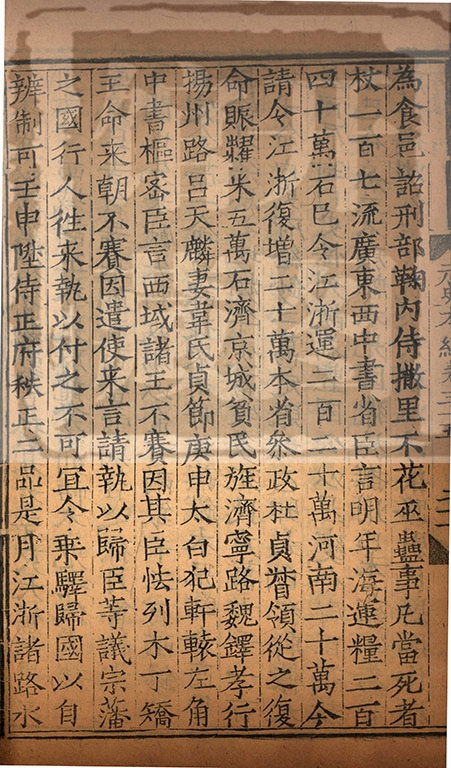 為食邑詔刑部鞫内侍撒里不花巫蠱事凡當死者
杖一百七流廣東西中書省臣言明年海運糧二百
四十萬石巳令江浙運二百二十萬河南二十萬今
請令江浙復增二十萬本省參政杜貞督領從之復
命賑糶米五萬石濟京城貧民旌濟寧路魏鐸孝行
揚州路呂天麟妻韋氏貞節庚申太白犯軒轅左角
中書樞密臣言西域諸王不賽因其臣怯列木丁矯
王命来朝不賽因遣使来言請執以歸臣等議宗藩
之國行人徃来執以付之不可宜令乗驛歸國以自
辨制可壬申陞侍正府秩正二品是月江浙諸路水